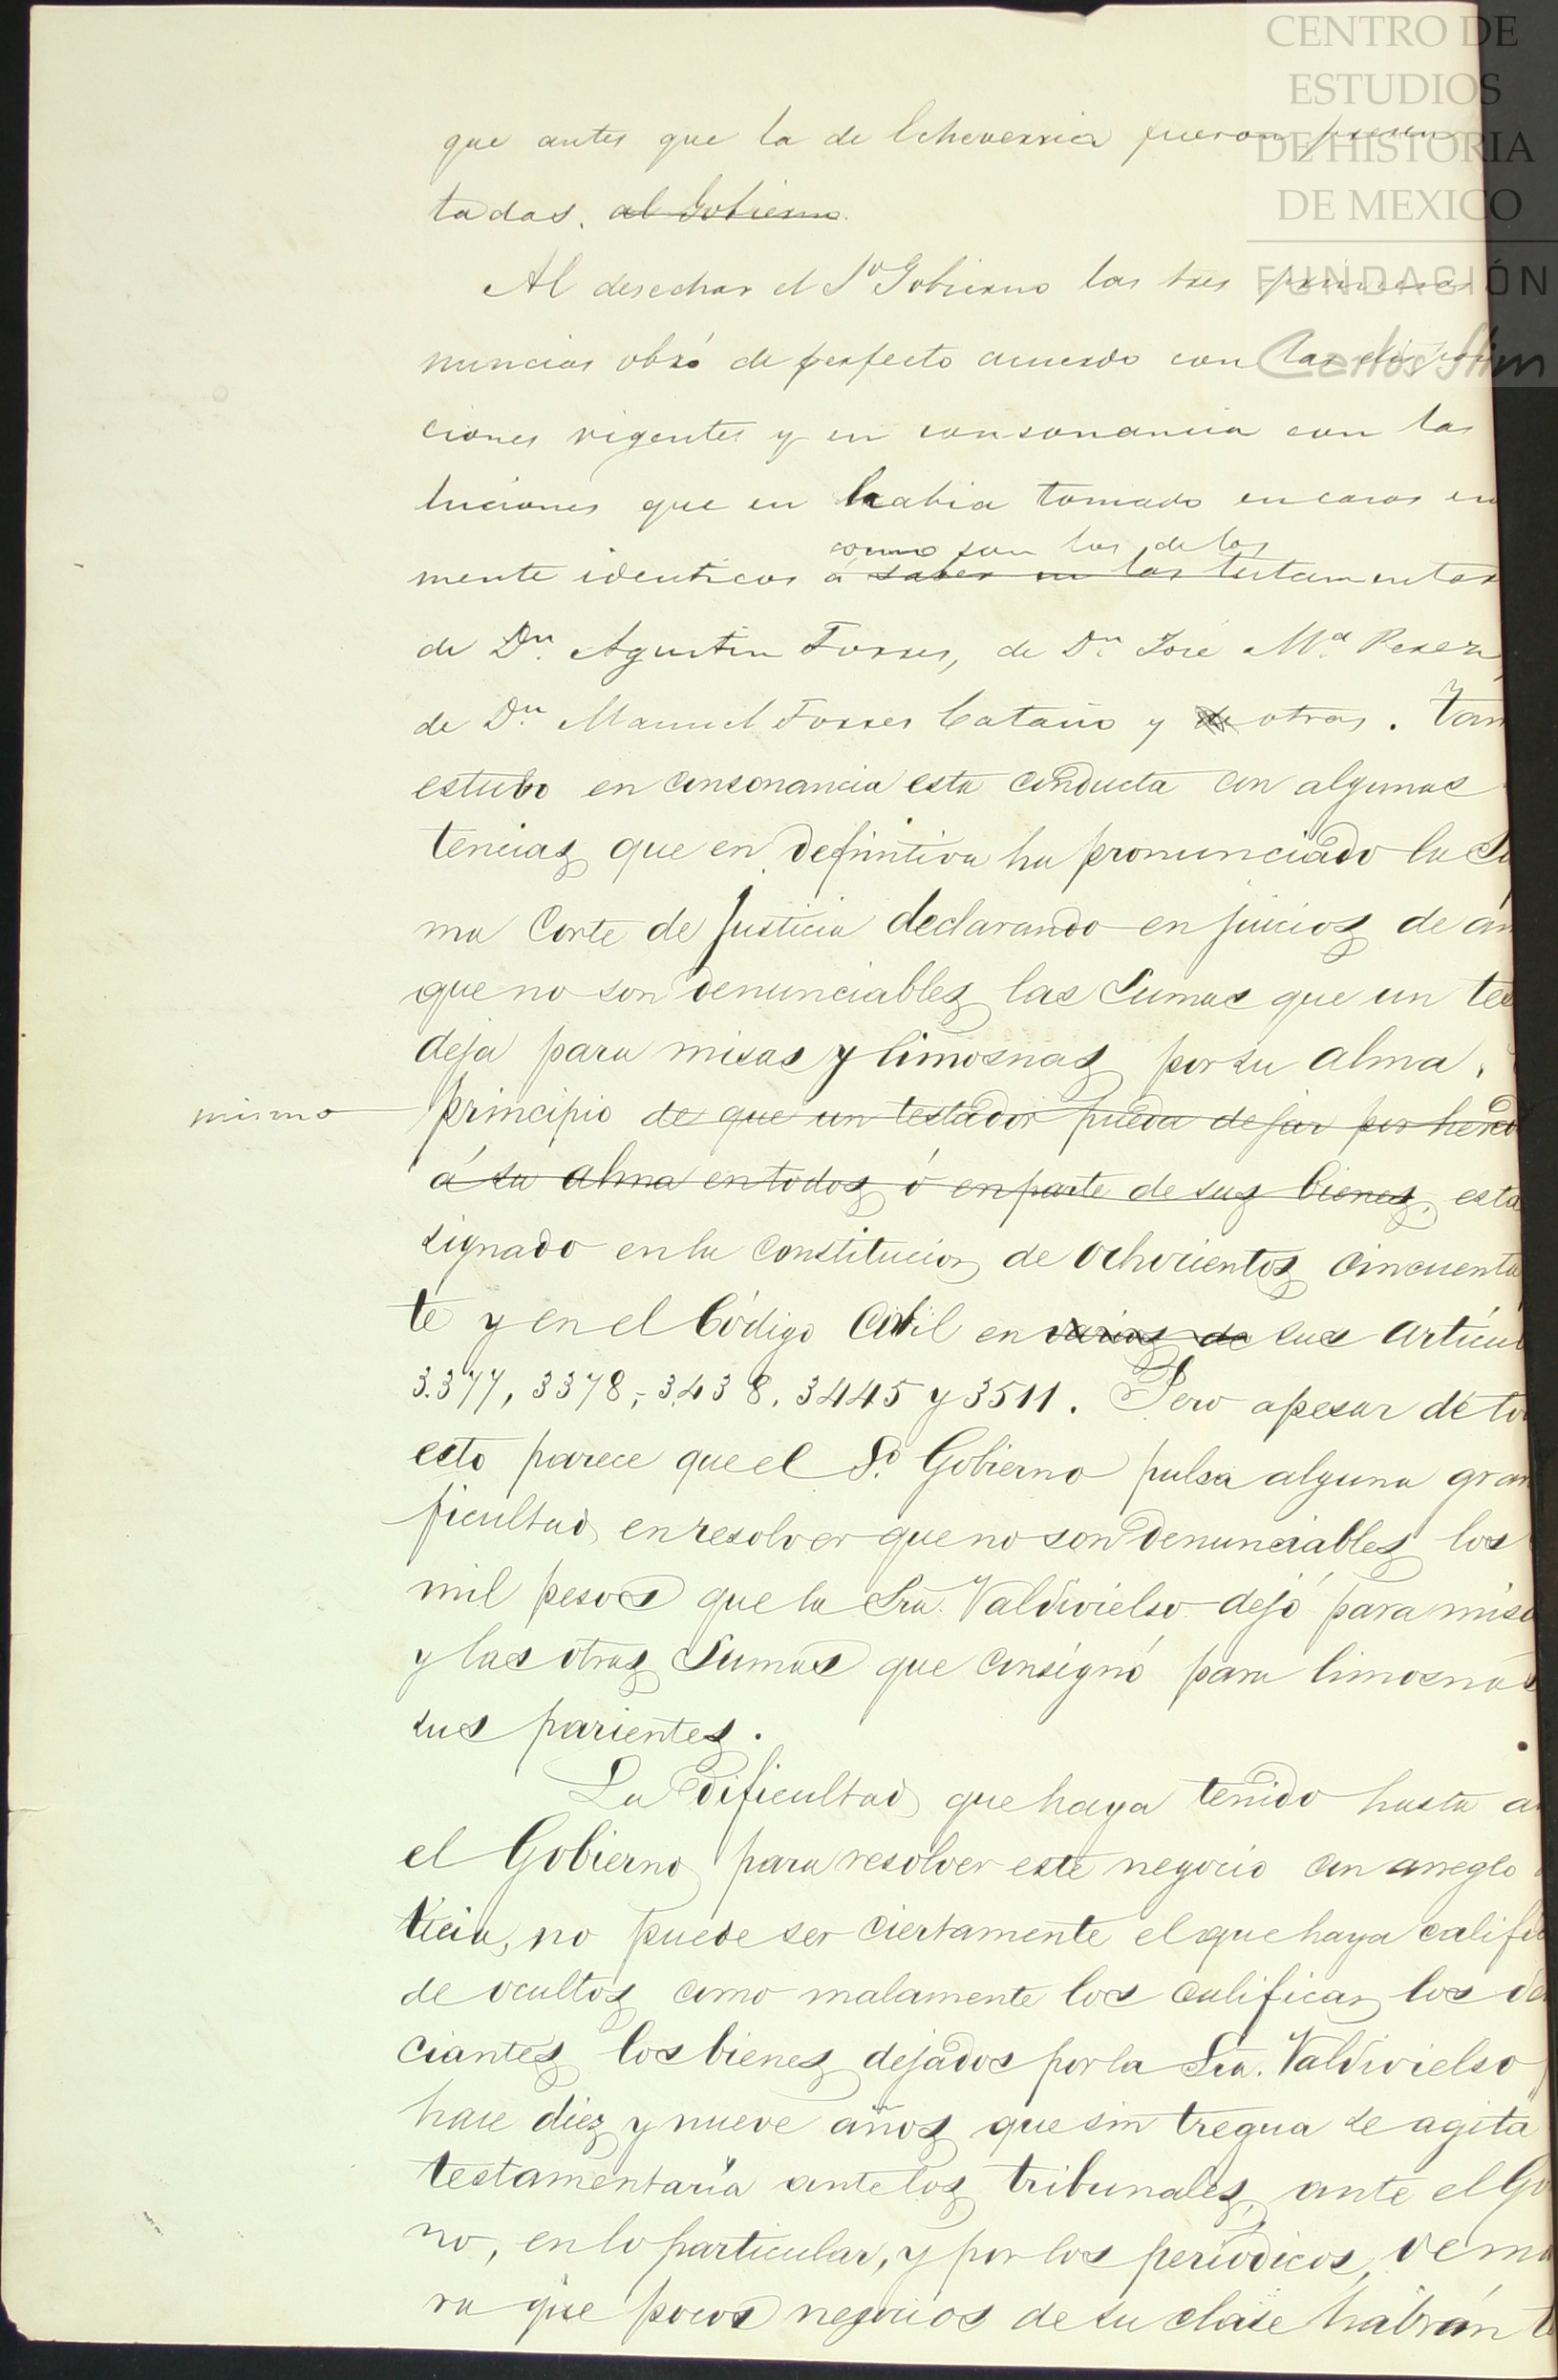 CENTRO DE
ESTUDIOS
DE HISTORIA
DE MEXICO
FUNDACIÓN
Carlos Slim
que antes que la de Echeverria fueron presen
tadas. al Gobierno.
Al desechar el Sº Gobierno las tres primeras
nuncias obró de perfecto acuerdo con las
ciones vigentes y en consonancia con las
luciones que en habia tomado en casos en
como son los de los
mente identicos á saber en los testamentos
de Dn. Agustin Torres, de Dn. José Mª Perez,
de Dn. Manuel Torres Cataño y de otros. Tam
estubo en consonancia esta conducta con algunas
tencias que en definitiva ha pronunciado la Su
ma Corte de Justicia declarando en juicios de am
que no son denunciables las sumas que un tes
deja para misas y limosnas por su alma.
mismo
principio de que un testador pueda dejar por hered
á su alma en todos ó en parte de sus bienes, esta
signado en la Constitucion de ochocientos cincuenta
te y en el Código Civil en varios de sus artícul
3.377, 3378, 3438, 3445 y 3511. Pero apesar de to
esto parece que el Sº Gobierno pulsa alguna gran
ficultad en resolver que no son denunciables los
mil pesos que la Sra. Valdivielso dejó para misa
y las otras sumas que consignó para limosnas
sus parientes.
La dificultad que haya tenido hasta a
el Gobierno para resolver este negocio con arreglo
ticia, no puede ser ciertamente el que haya califi
de ocultos como malamente los califican los de
ciantes los bienes dejados por la Sra. Valdivielso
hace diez y nueve años que sin tregua se agita
testamentaría ante los tribunales, ante el Go
no, en lo particular, y por los periódicos, de m
ra que pocos negocios de su clase habrán t